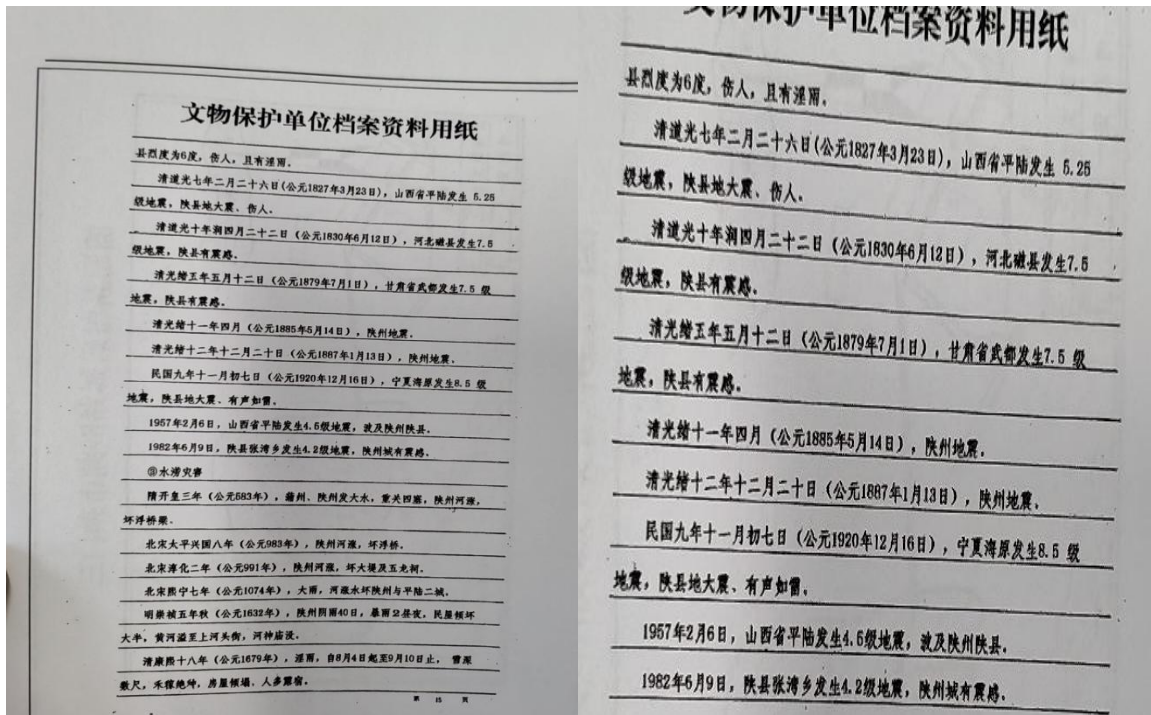 文物保护单位档案资料用纸
县烈度为6度，伤人，且有淫雨．
清道光七年二月二十六日(公元1827年3月23日)，山西省平陆发生 5.25
级地震，陕县地大震、伤人．
清道光十年润四月二十二日（公元1830年6月12日），河北磁县发生7.5
级地震，陕县有震感．
清光绪五年五月十二日（公元1879年7月1日），甘肃省武都发生7.5 级
地震，陕县有震感．
清光绪十一年四月（公元1885年5月14日），陕州地震．
清光绪十二年十二月二十日（公元1887年1月13日），陕州地震．
民国九年十一月初七日（公元1920年12月16日），宁夏海原发生8.5 级
地震，陕县地大震、有声如雷．
1957年2月6日，山西省平陆发生4.5级地震，波及陕州陕县．
1982年6月9日，陕县张湾乡发生4.2级地震，陕州城有震感．
③水涝灾害
隋开皇三年（公元583年），蒲州、陕州发大水，重关四塞，陕州河涨，
坏浮桥梁．
北宋太平兴国八年（公元983年），陕州河涨，坏浮桥．
北宋淳化二年（公元991年），陕州河涨，坏大堤及五龙祠．
北宋熙宁七年（公元1074年），大雨，河涨水坏陕州与平陆二城．
明崇桢五年秋（公元1632年），陕州阴雨40日，暴雨2昼夜，民屋倾坏
大半，黄河溢至上河头街，河神庙没．
清康熙十八年（公元1679年），淫雨，自8月4日起至9月10日止， 雷深
数尺，禾稼绝坤，房屋倾塌、人多露宿．
第 15 页
文物保护单位档案资料用纸
县烈度为6度，伤人，且有淫雨．
清道光七年二月二十六日(公元1827年3月23日)，山西省平陆发生 5.25
级地震，陕县地大震、伤人．
清道光十年润四月二十二日（公元1830年6月12日），河北磁县发生7.5
级地震，陕县有震感．
清光绪五年五月十二日（公元1879年7月1日），甘肃省武都发生7.5 级
地震，陕县有震感．
清光绪十一年四月（公元1885年5月14日），陕州地震．
清光绪十二年十二月二十日（公元1887年1月13日），陕州地震．
民国九年十一月初七日（公元1920年12月16日），宁夏海原发生8.5 级
地震，陕县地大震、有声如雷．
1957年2月6日，山西省平陆发生4.5级地震，波及陕州陕县．
1982年6月9日，陕县张湾乡发生4.2级地震，陕州城有震感．